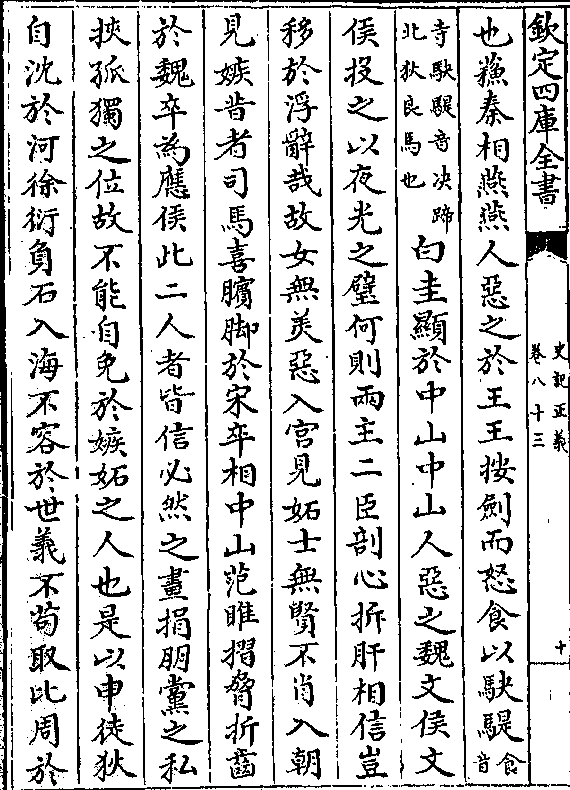 欽定四庫全書
史記正義
卷八十三
十
也蘇秦相燕燕人惡之於王王按劍而怒食以駃騠食音
寺駃騠音决蹄
北狄良馬也
白圭顯於中山中山人惡之魏文侯文
侯投之以夜光之璧何則兩主二臣剖心拆肝相信豈
移於浮辭哉故女無美惡入宮見妬士無賢不肖入朝
見嫉昔者司馬喜臏脚於宋卒相中山范雎摺脅折齒
於魏卒為應侯此二人者皆信必然之畫捐朋黨之私
挾孤獨之位故不能自免於嫉妬之人也是以申徒狄
自沈於河徐衍負石入海不容於世義不苟取比周於